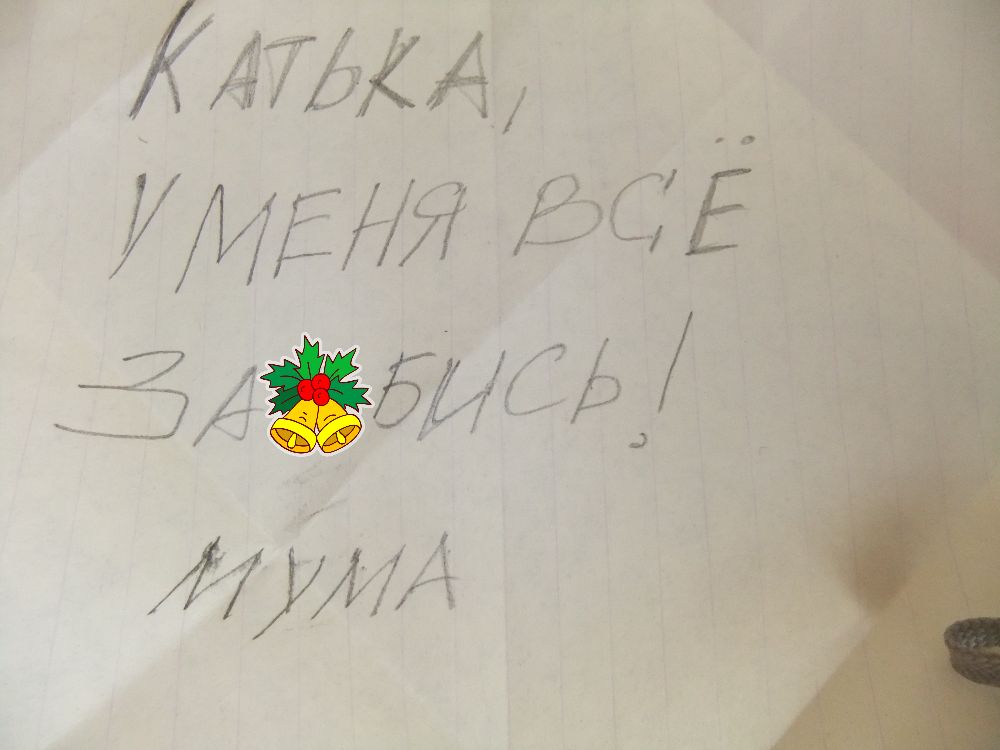 КАТЬКА,
У МЕНЯ ВСЁ
ЗА БИСЬ!
МУМА